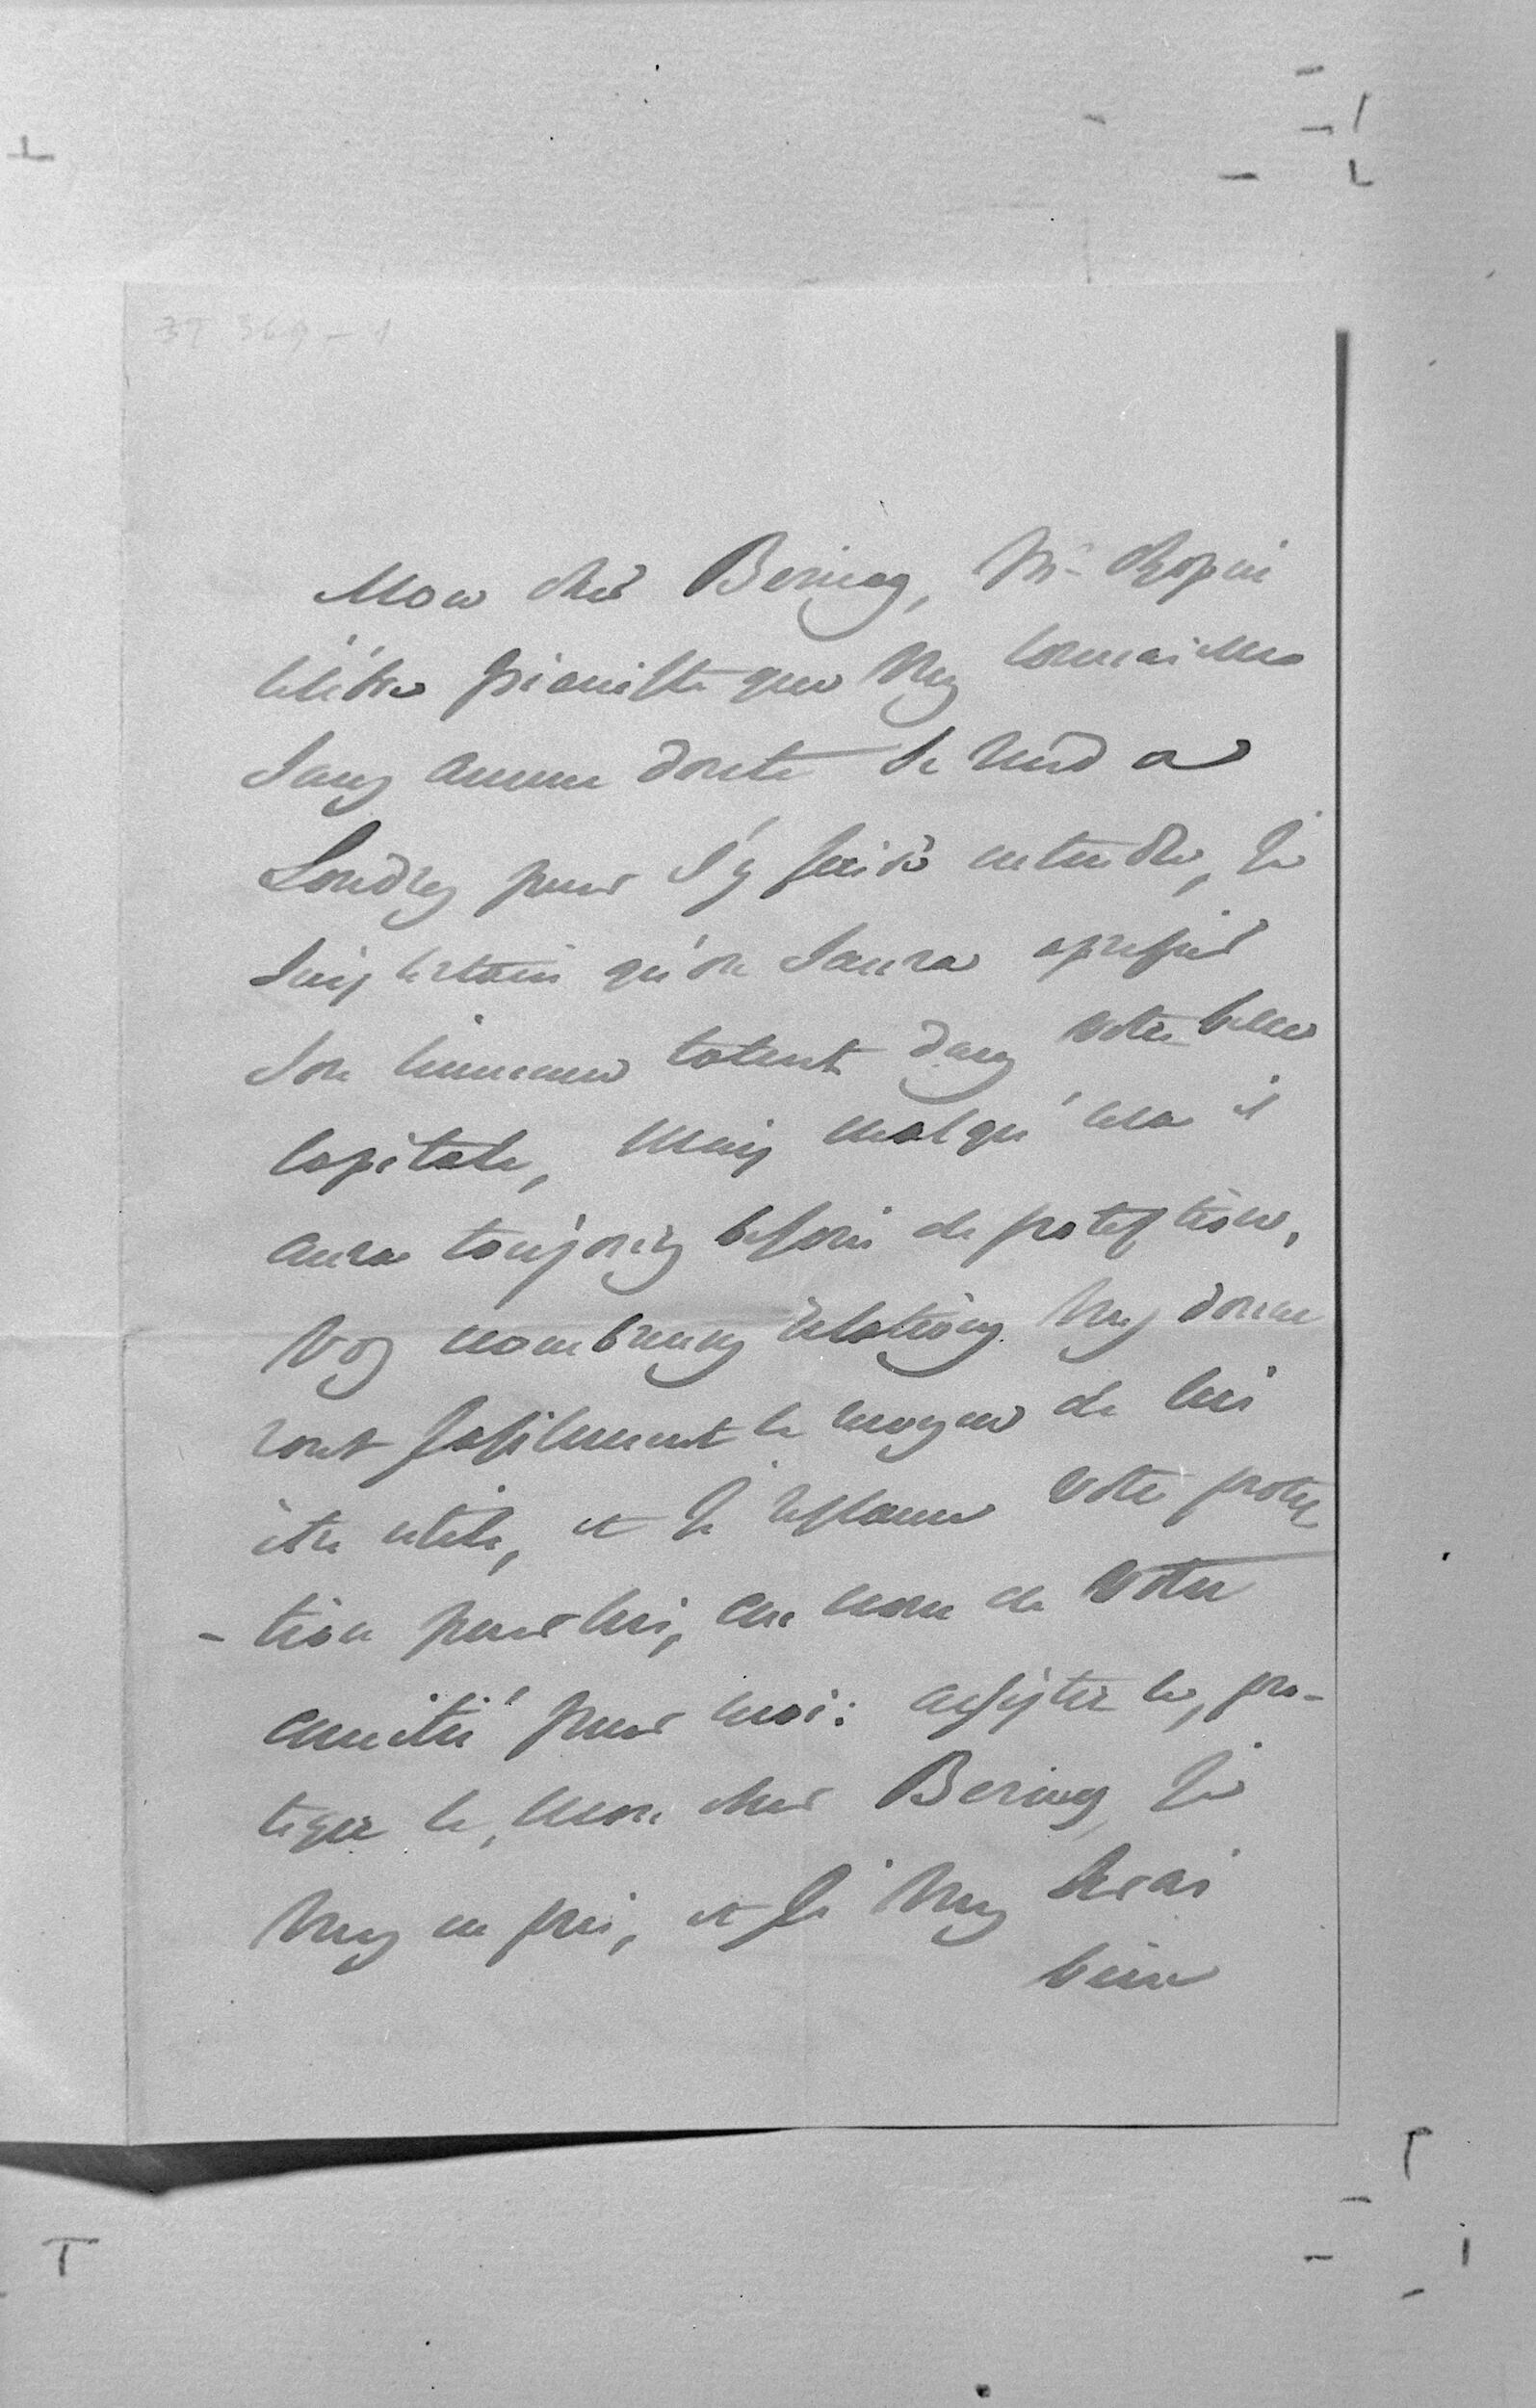 37 369 - 1
Mon cher Bering, Mr Chopin
célébre pianiste que vous connaissez
sans aucun doute se rend a
Londres pour s'y faire entendre, je
suis certain qu'on saura apressier
son immence talent dans votre belle
capitale, mais malgré cela il
aura toujours besoin de protection,
vos nombreuses relations vous donne
ront fasilement le moyen de lui
être utile, et je reclame votre protec
-tion pour lui, au nom de votre
amitié pour moi: assistez le, pro-
tegez le, mon cher Bering, je
vous en prie, et je vous serai
bien